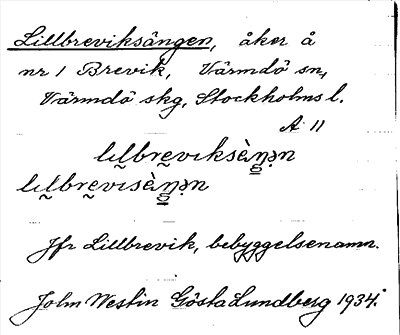 Lillbreviksängen, åker å
nr 1 Brevik, Värmdö sn,
Värmdö skg, Stockholms l.
A 11
lɩl̰bre̬vɩksὲŋ̲ə̣n
lɩl̰bre̬vɩsὲŋ̲ə̣n
Jfr Lillbrevik, bebyggelsenamn.
John Westin Gösta Lundberg 1934.